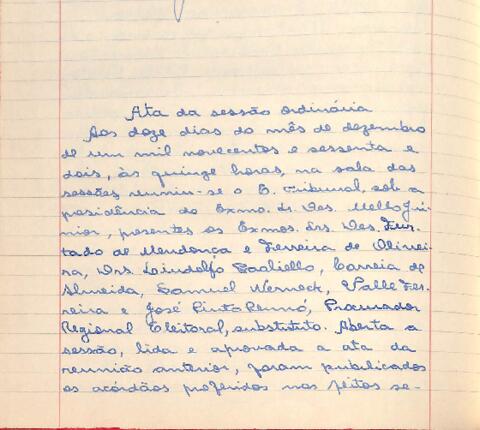 Ata da sessão ordinária
Aos doze dias do mês de dezembro
de um mil novecentos e sessenta e
dois, às quinze horas, na sala das
sessões, reuniu-se o E. Tribunal, sob a
presidência do Exmo. Sr. Des. Mello Jú-
nior, presentes os Exmos. Srs. Des. Fur-
tado de Mendonça e Ferreira de Olivei-
ra, Drs. Lindolfo Paoliello, Correia de
Almeida, Samuel Werneck, Valle Fer-
reira e José Pinto Rennó, Procurador
Regional Eleitoral, substituto. Aberta a
sessão, lida e aprovada a ata da
reunião anterior, foram publicados
os acórdãos proferidos nos feitos se-